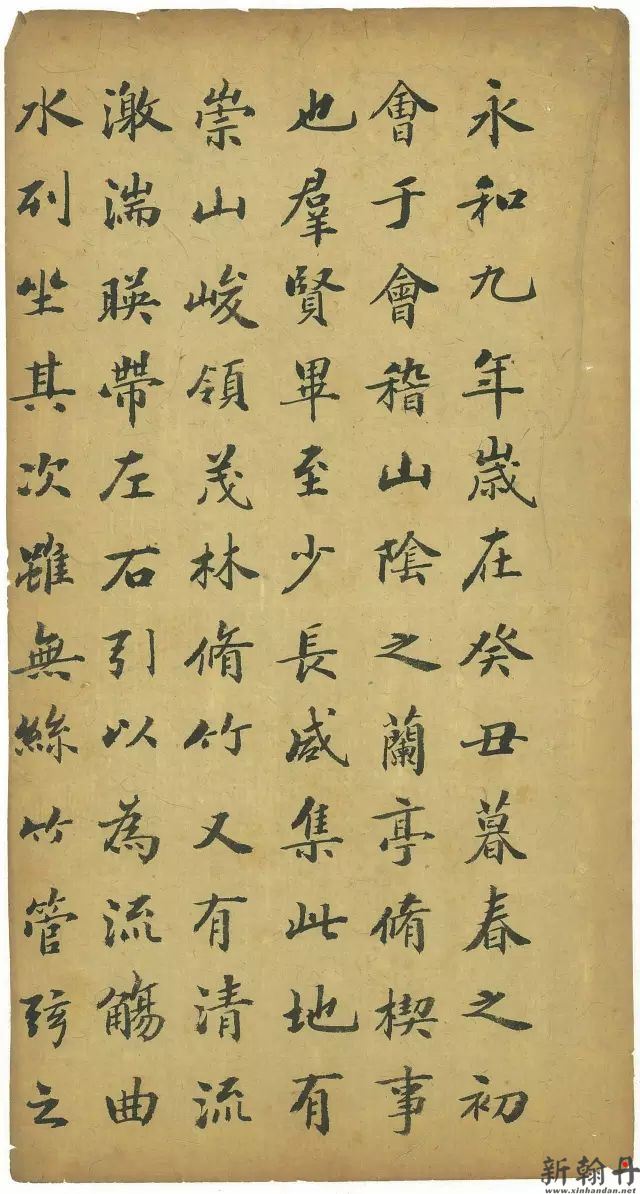 永和九年歲在癸丑暮春之初
會于會稽山陰之蘭亭脩楔事
也羣賢畢至少長咸集此地有
崇山峻領茂林脩竹又有清流
激湍暎帶左右引以為流觴曲
水列坐其次雖無絲竹管弦之
新翰丹
www.xinhandan.net